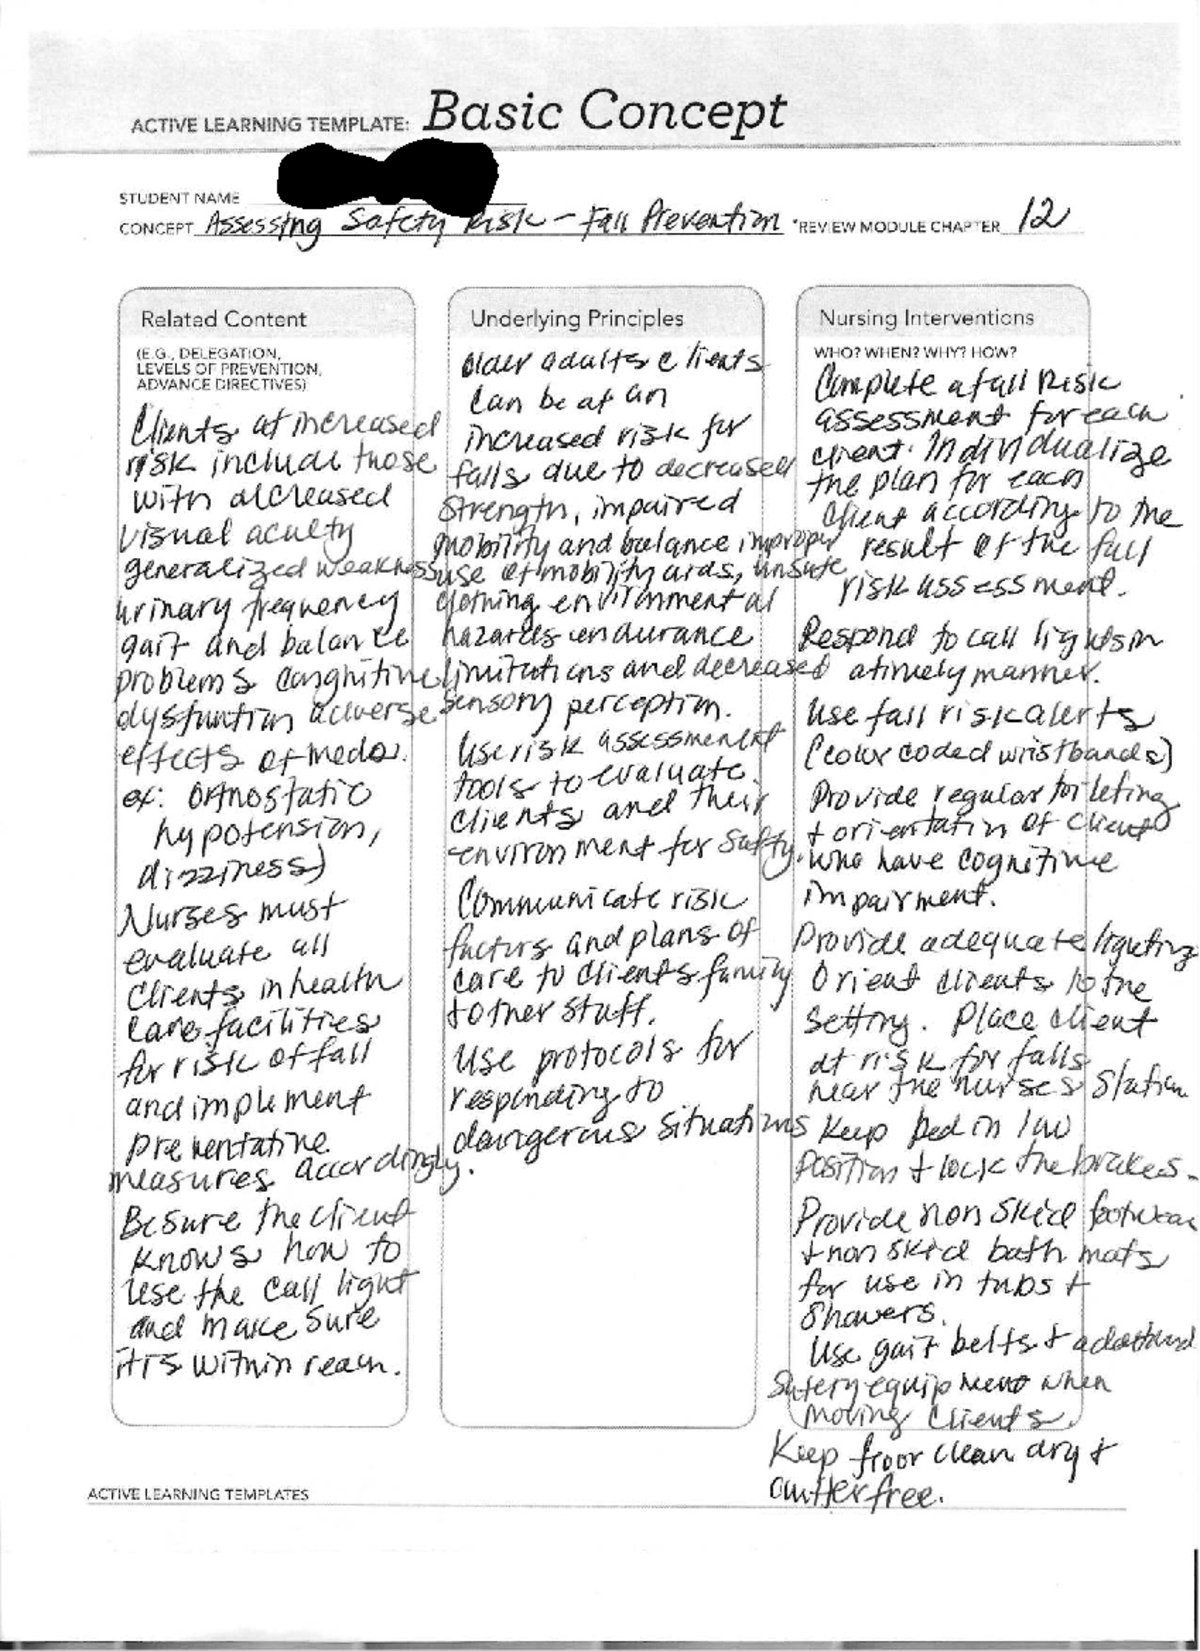 ACTIVE LEARNING TEMPLATE: Basic Concept
STUDENT NAME
CONCEPT Assessing Safety Risk - Fall Prevention *REVIEW MODULE CHAPTER 12
Related Content
(E.G., DELEGATION,
LEVELS OF PREVENTION,
ADVANCE DIRECTIVES)
Clients at increased
risk include those
with decreased
visual acuity
generalized weakness
urinary frequency
gait and balance
problems congnitive
dysfuntion adverse
effects of meds.
ex: orthostatic
hypotension,
dizziness)
Nurses must
evaluate all
clients in health
care facilities
for risk of fall
and implement
preventative
measures accordingly.
Be sure the client
knows how to
use the call light
and make sure
it's within reach.
Underlying Principles
older adults clients
can be at an
increased risk for
falls due to decreased
strength, impaired
mobility and balance improper
use of mobility aids, unsafe
clothing environmental
hazards endurance
limitations and decreased
sensory perception.
Use risk assessment
tools to evaluate
clients and their
environment for safty.
Communicate risk
factors and plans of
care to clients family
+ other staff.
Use protocols for
responding to
dangerous situations
Nursing Interventions
WHO? WHEN? WHY? HOW?
Complete a fall Risk
assessment for each
client. Individualize
the plan for each
client according to the
result of the fall
risk assessment.
Respond to call lights in
a timely manner.
Use fall risk alerts
(color coded wristbands)
Provide regular toileting
+ orientatin of client
who have cognitive
impairment.
Provide adequate lighting
Orient clients to the
setting. Place client
at risk for falls
near the nurses station
Keep bed in low
position + lock the brakes.
Provide non skid footwear
+ non skid bath mats
for use in tubs +
showers.
Use gait belts +
Safety equipment when
moving clients.
Keep floor clean dry +
clutter free.
ACTIVE LEARNING TEMPLATES